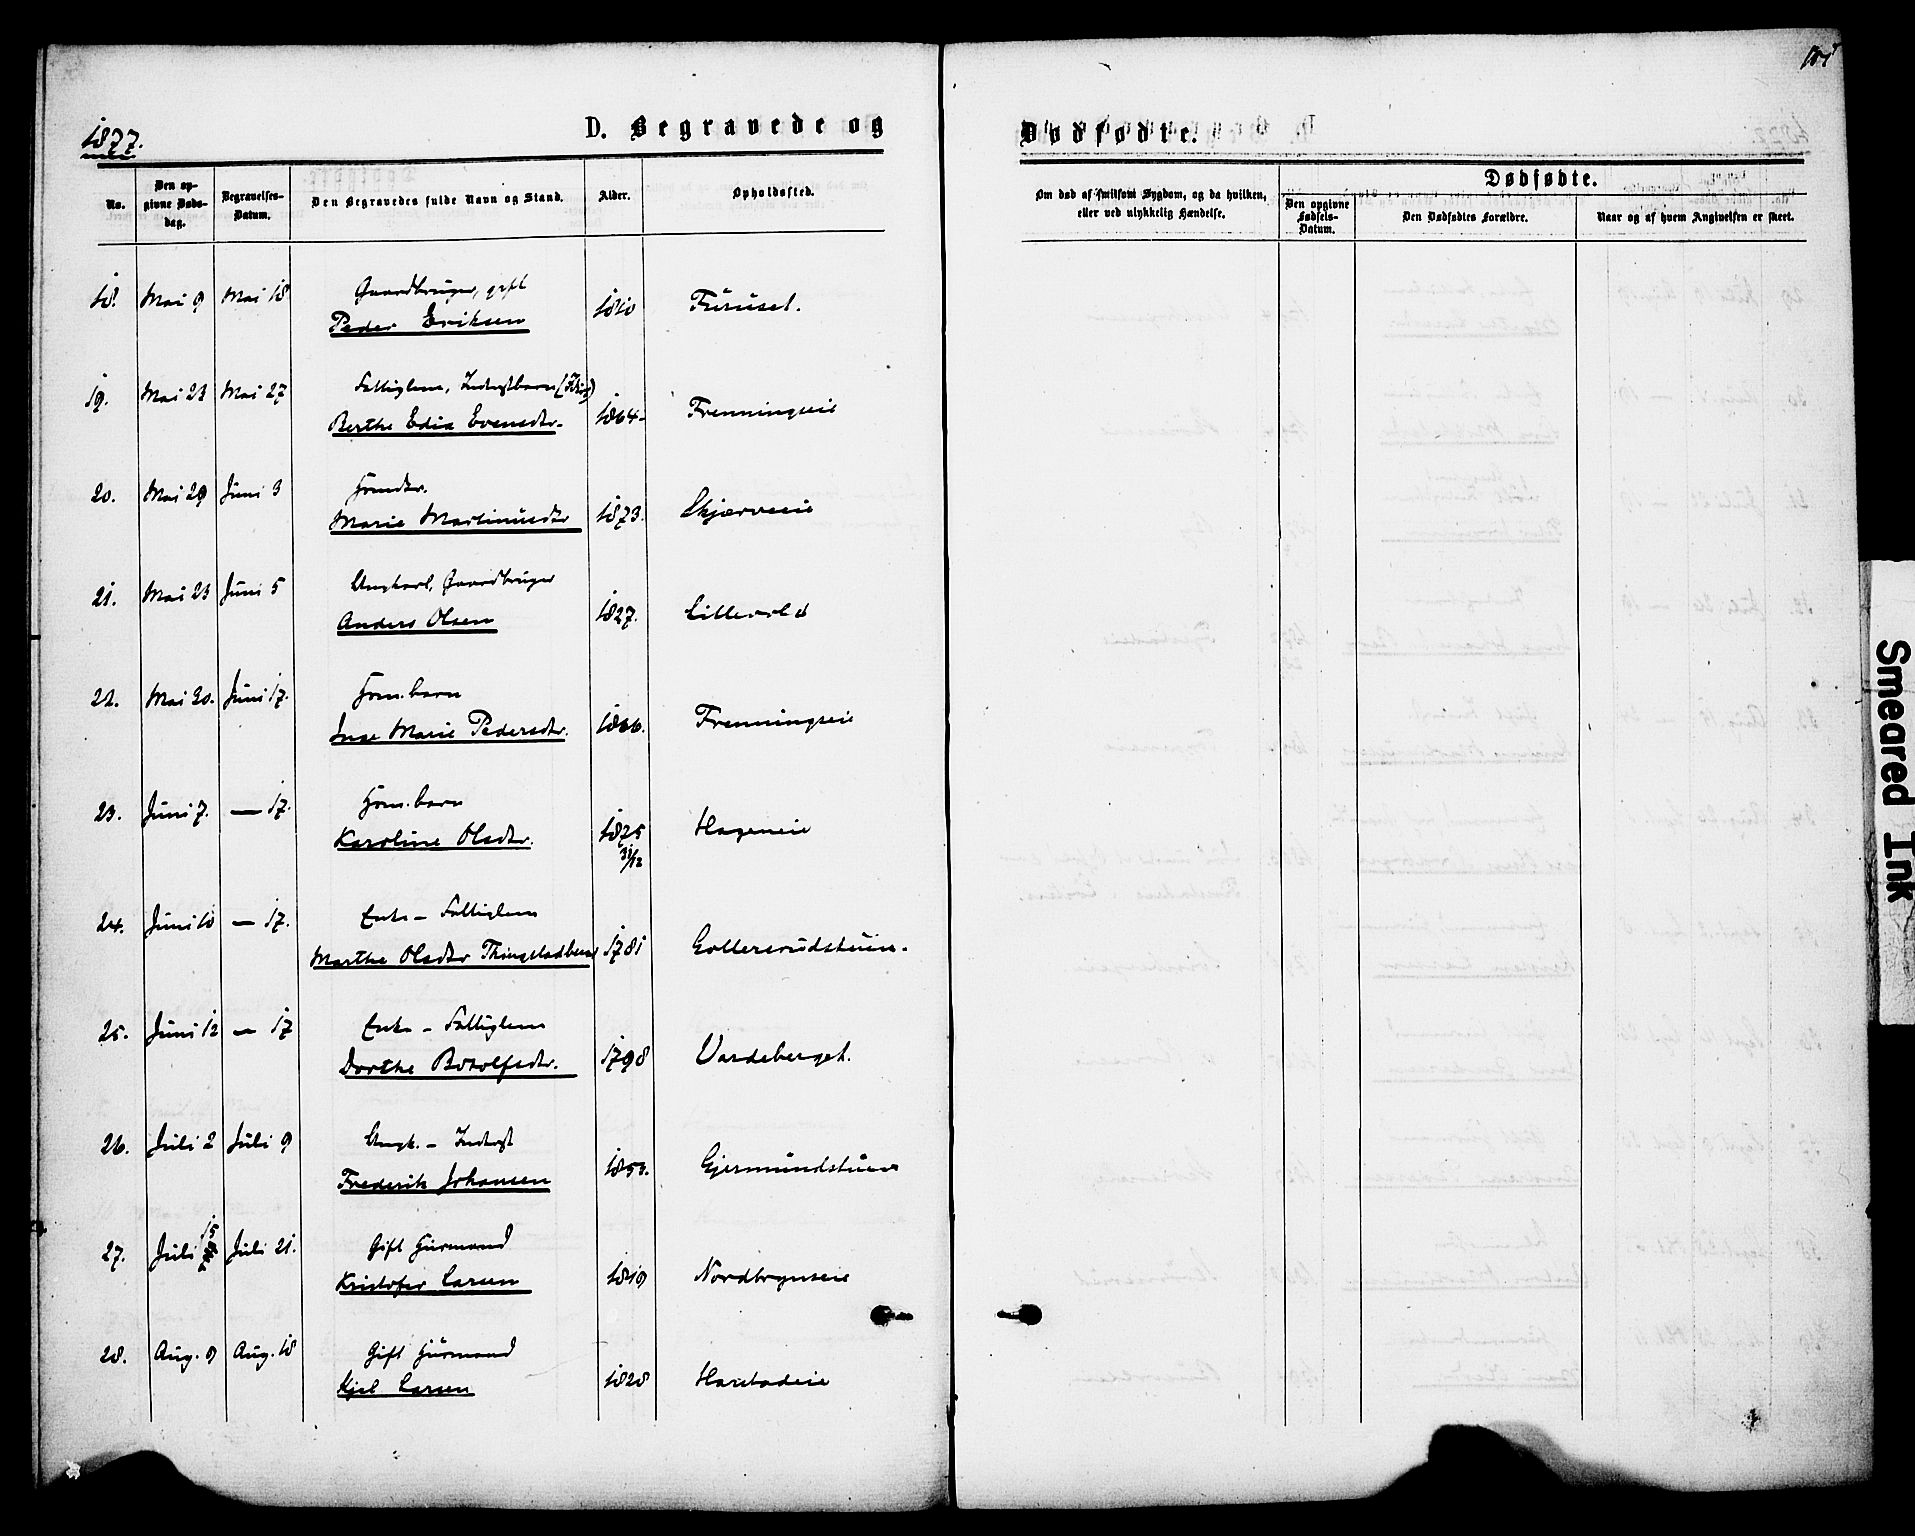 1877.
D. Begravede og
Dødfødte.
No.
Den opgivne Dødsdag.
Begravelses-Datum.
Den Begravedes fulde Navn og Stand.
Alder.
Opholdssted.
Om død af smitsom Sygdom, og da hvilken, eller ved ulykkelig Hændelse.
Dødfødte.
Den opgivne Fødsels-Datum.
Den Dødfødtes Forældre.
Naar og af hvem Angivelsen er skeet.
18. Mai 9 Mai 18 Gaardbruger, gift
Peder Eriksen 1810 Furuset.
19. Mai 23 Mai 27 Fattiglem, Inderstbarn
Berthe Edia Evensdtr. 1864 Frenningseie
20. Mai 29 Juni 3 Hsmdtr.
Marie Martinusdtr 1873. Skjærveeie
21. Mai 23 Juni 5 Ungkarl, Gaardbruger
Anders Olsen 1827. Lillevold
22. Mai 30. Juni 17. Hsm.barn
Inge Marie Pedersdtr. 1866. Frenningseie
23. Juni 7. — 17. Hsm.barn
Karoline Olsdtr. 1875 31/12 Hageneie
24. Juni 10 — 17. Enke – Fattiglem
Marthe Olsdtr 1781 Gollersrudstuen.
25. Juni 12 — 17 Enke – Fattiglem
Dorthe Botolfsdtr. 1798 Vardeberget.
26. Juli 2 Juli 9 Ungk. – Inderst
Frederik Johansen Gjermundstuen
27. Juli 15 Juli 21. Gift Huusmand
Kristofer Larsen 1819 Nordbyeneie
28. Aug. 9 Aug. 18 Gift Huusmand
Kjel Larsen 1828 Harstadeie
Smeared Ink